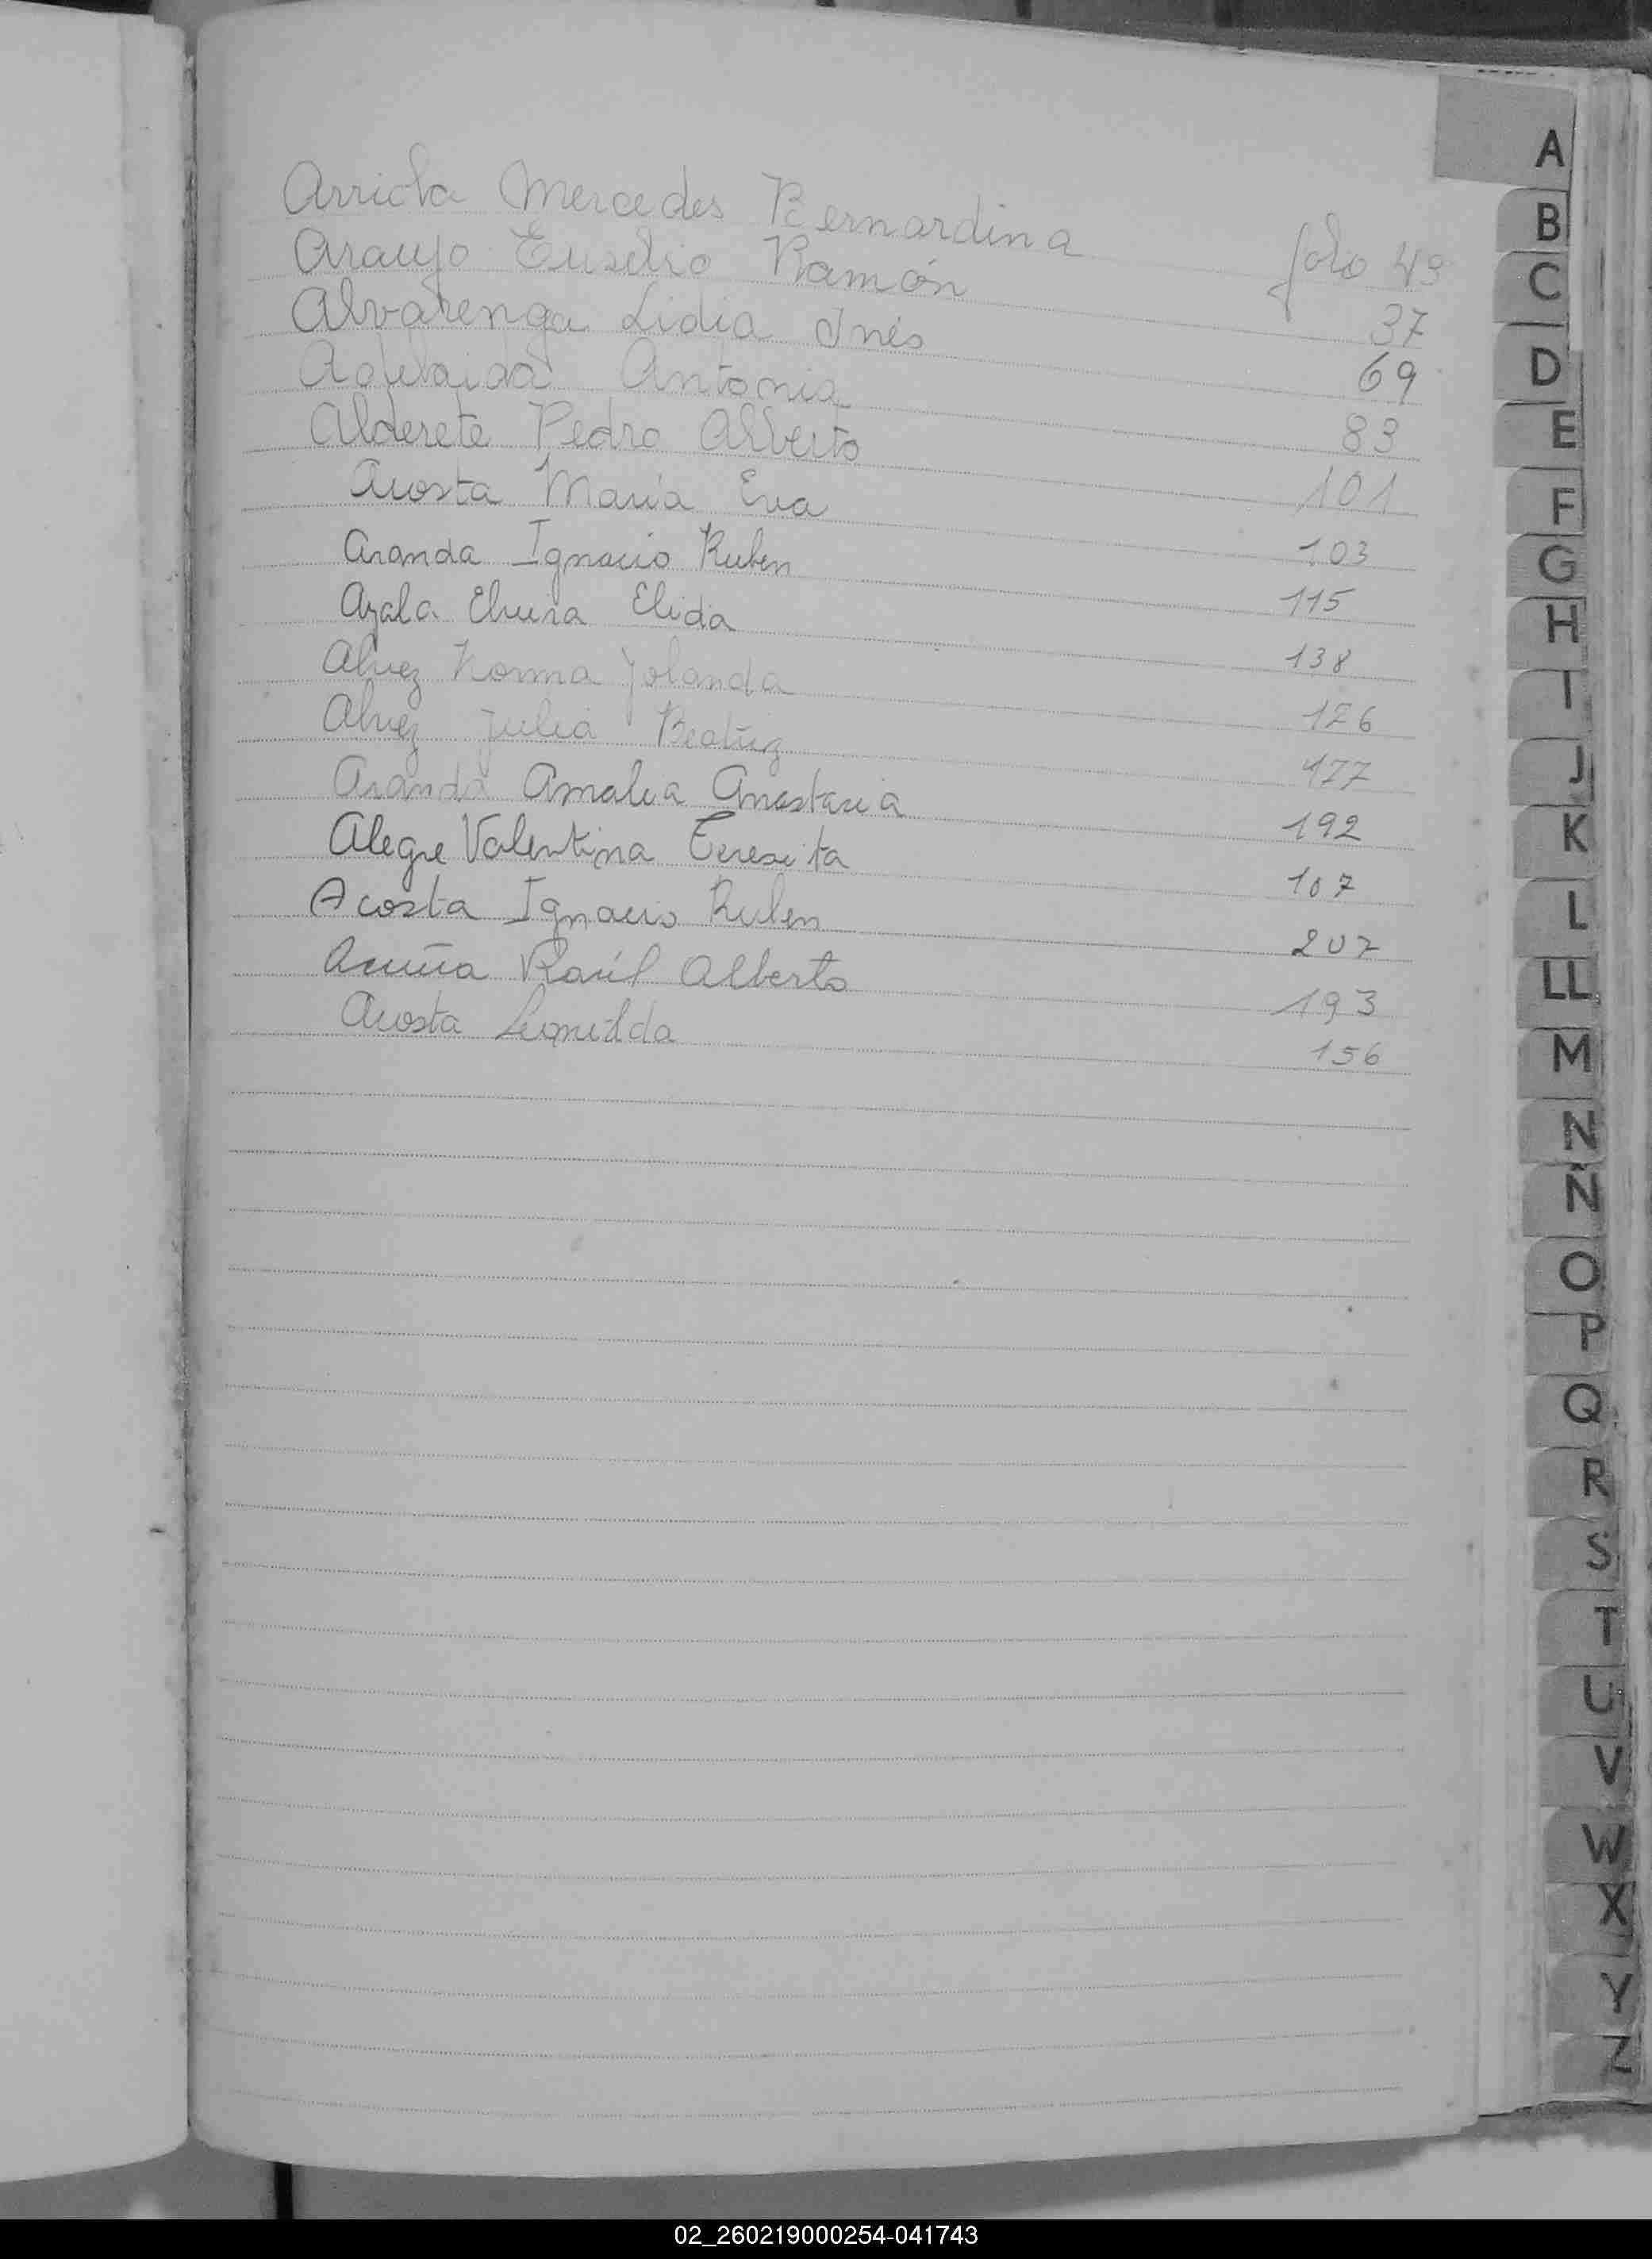 Arriola Mercedes Bernardina folio 49
Araujo Eusebio Ramón 37
Alvarenga Lidia Inés 69
Adelaida Antonia 83
Alderete Pedro Alberto 101
Acosta María Eva 103
Aranda Ignacio Ruben 115
Ayala Elvira Elida 138
Alvez Norma Yolanda 126
Alvez Julia Beatriz 177
Aranda Amalia Anastacia 192
Alegre Valentina Teresita 107
Acosta Ignacio Ruben 207
Acuña Raúl Alberto 193
Acosta Leonilda 156
A
B
C
D
E
F
G
H
I
J
K
L
LL
M
N
Ñ
O
P
Q
R
S
T
U
V
W
X
Y
Z
02_260219000254-041743